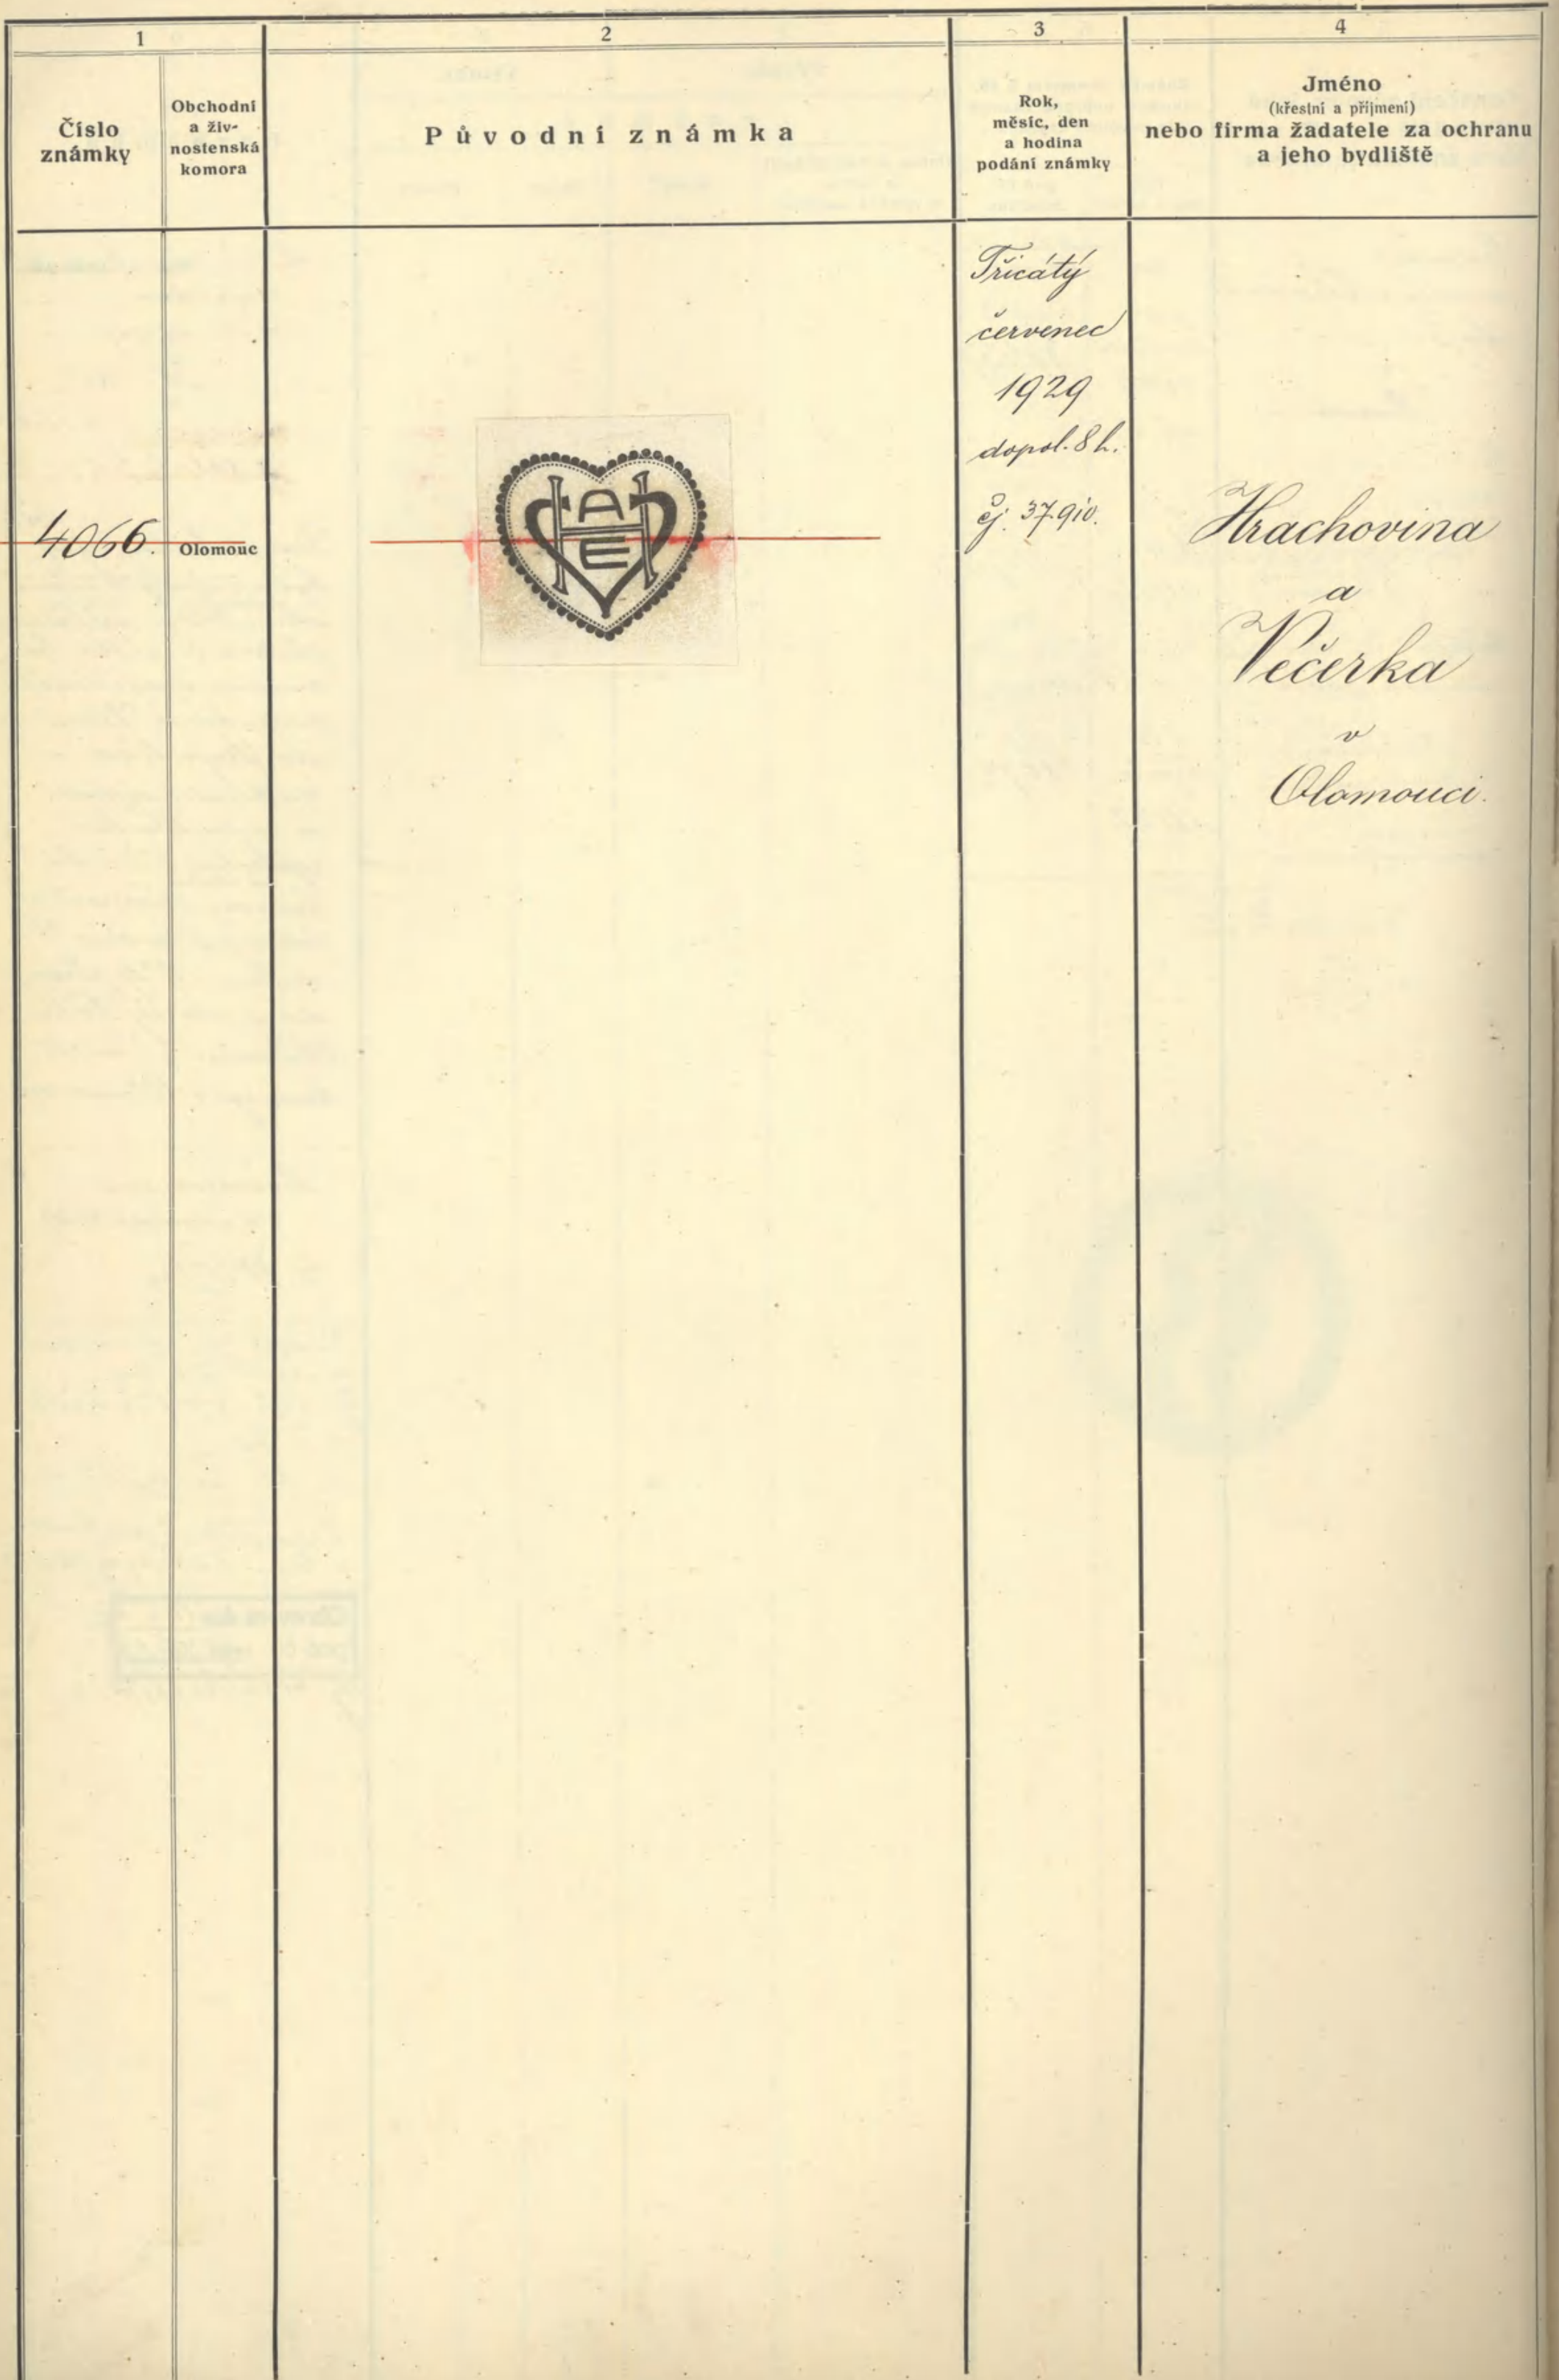 1
2
3
4
Číslo
známky
Obchodní
a živ-
nostenská
komora
Původní známka
Rok,
měsíc, den
a hodina
podání známky
Jméno
(křestní a příjmení)
nebo firma žadatele za ochranu
a jeho bydliště
4066.
Olomouc
A
H
E
Třicátý
červenec
1929
dopol. 8 h.
čj. 37.910.
Hrachovina
a
Večerka
v
Olomouci.